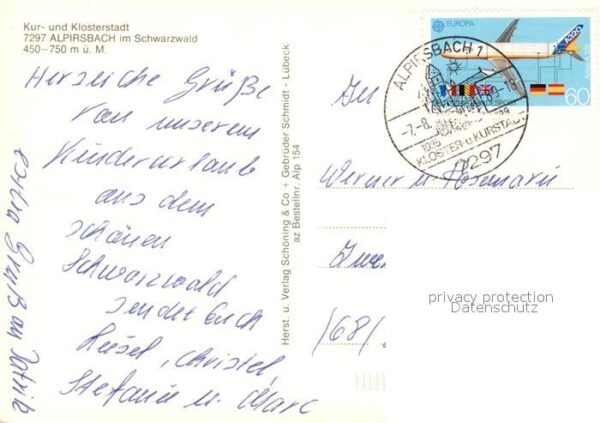 Kur- und Klosterstadt
7297 ALPIRSBACH im Schwarzwald
450–750 m ü. M.
Herzliche Grüße
von unserem
Kinderurlaube
aus dem
schönen
Schwarzwald
sendet Euch
Christel,
Stefanie u. Marc
Extra Gruß an
Herst. u. Verlag Schöning & Co + Gebrüder Schmidt - Lübeck
az Bestellnr. Alp 154
EUROPA
A320
60
ALPIRSBACH 1
-7.-8.
KLOSTER-u KURSTADT
7297
Werner u. Rosemarie
/68/
privacy protection
Datenschutz